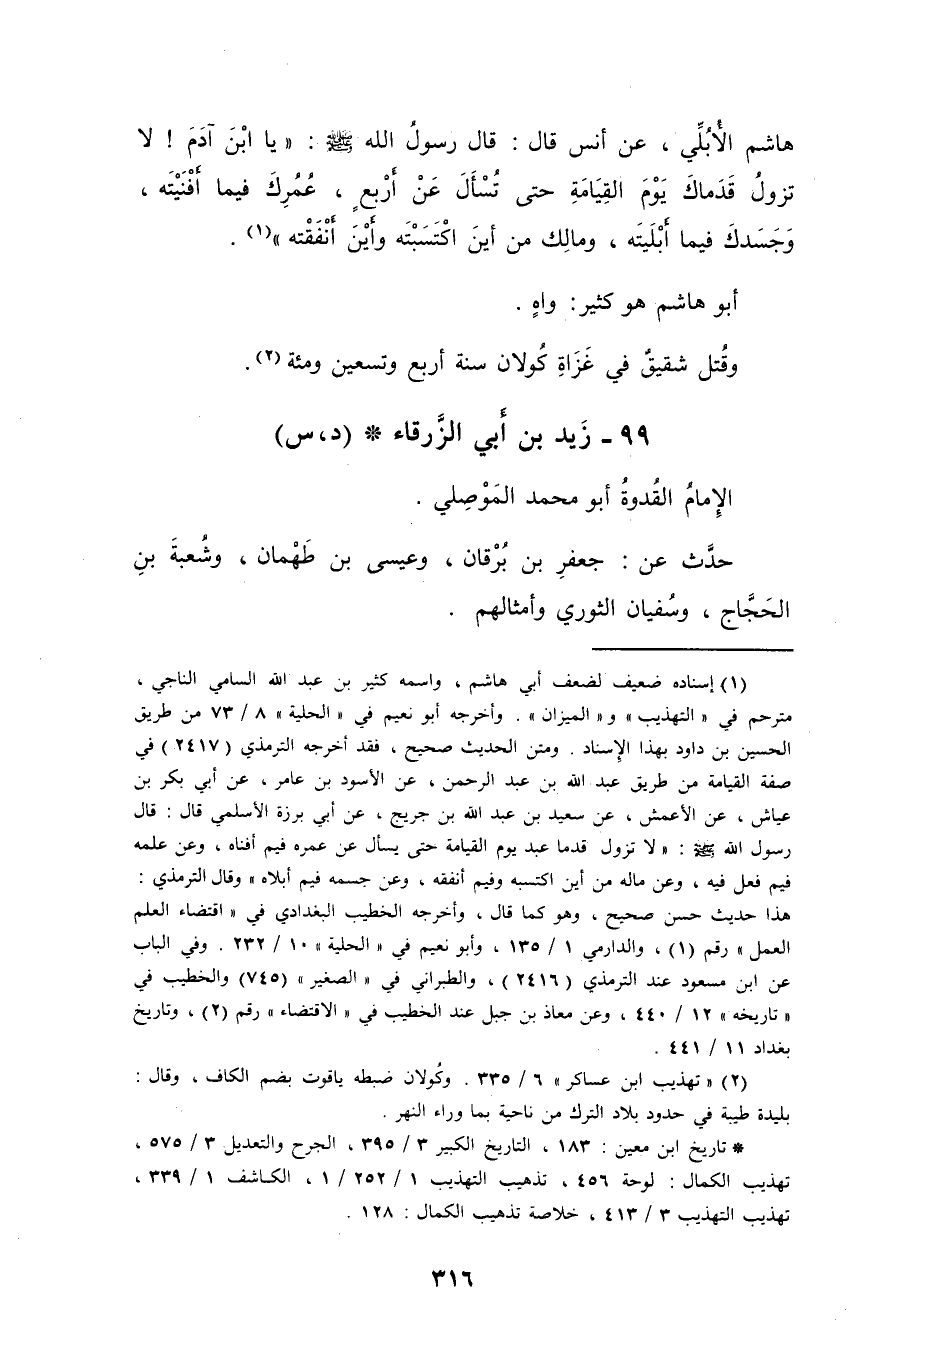 هاشم الأُبُلِّي ، عن أنس قال : قال رسولُ الله ﷺ : « يا ابْنَ آدَمَ ! لا
تزولُ قَدَماكَ يَوْمَ القِيَامَةِ حتى تُسْأَلَ عَنْ أَرْبعٍ ، عُمُرِكَ فيما أَفْنَيْتَه ،
وَجَسَدكَ فيما أَبْلَيتَه ، ومالِك من أينَ اكْتَسَبْتَه وأَيْنَ أَنْفَقْته »(١) .
أبو هاشم هو كثير : واهٍ .
وقُتل شقيقٌ في غَزَاةِ كُولان سنة أربع وتسعين ومئة (٢) .
٩٩ ـ زَيد بن أَبي الزَّرقاء * (د، س)
الإِمامُ القُدوةُ أبو محمد المَوْصِلي .
حدَّث عن : جعفرِ بن بُرْقان ، وعيسى بن طَهْمان ، وشُعبةَ بنِ
الحَجَّاج ، وسُفيان الثوري وأمثالهم .
(١) إسناده ضعيف لضعف أبي هاشم ، واسمه كثير بن عبد الله السامي الناجي ،
مترجم في « التهذيب » و « الميزان » . وأخرجه أبو نعيم في « الحلية » ٨ / ٧٣ من طريق
الحسين بن داود بهذا الإسناد . ومتن الحديث صحيح ، فقد أخرجه الترمذي ( ٢٤١٧ ) في
صفة القيامة من طريق عبد الله بن عبد الرحمن ، عن الأسود بن عامر ، عن أبي بكر بن
عياش ، عن الأعمش ، عن سعيد بن عبد الله بن جريج ، عن أبي برزة الأسلمي قال : قال
رسول الله ﷺ : « لا تزول قدما عبد يوم القيامة حتى يسأل عن عمره فيم أفناه ، وعن علمه
فيم فعل فيه ، وعن ماله من أين اكتسبه وفيم أنفقه ، وعن جسمه فيم أبلاه » وقال الترمذي :
هذا حديث حسن صحيح ، وهو كما قال ، وأخرجه الخطيب البغدادي في « اقتضاء العلم
العمل » رقم (١) ، والدارمي ١ / ١٣٥ ، وأبو نعيم في « الحلية » ١٠ / ٢٣٢ . وفي الباب
عن ابن مسعود عند الترمذي ( ٢٤١٦ ) ، والطبراني في « الصغير » (٧٤٥) والخطيب في
« تاريخه » ١٢ / ٤٤٠ ، وعن معاذ بن جبل عند الخطيب في « الاقتضاء » رقم (٢) ، وتاريخ
بغداد ١١ / ٤٤١ .
(٢) « تهذيب ابن عساكر » ٦ / ٣٣٥ . وكُولان ضبطه ياقوت بضم الكاف ، وقال :
بليدة طيبة في حدود بلاد الترك من ناحية بما وراء النهر .
* تاريخ ابن معين : ١٨٣ ، التاريخ الكبير ٣ / ٣٩٥ ، الجرح والتعديل ٣ / ٥٧٥ ،
تهذيب الكمال : لوحة ٤٥٦ ، تذهيب التهذيب ١ / ٢٥٢ / ١ ، الكاشف ١ / ٣٣٩ ،
تهذيب التهذيب ٣ / ٤١٣ ، خلاصة تذهيب الكمال : ١٢٨ .
٣١٦